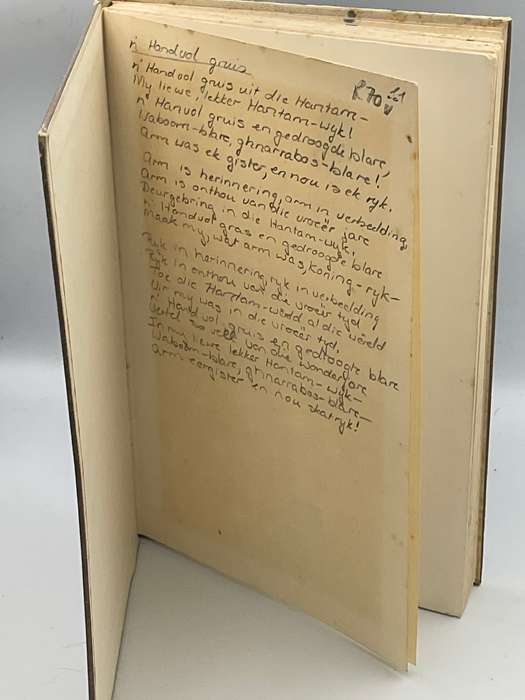 'n Handvol gruis
R70
'n Handvol gruis uit die Hantam-
My liewe, lekker Hantam-wyk!
'n Hanvol gruis en gedroogde blare
Waboom-blare, ghnarrabos-blare!
Arm was ek gister, en nou is ek ryk.
Arm is herinnering, arm in verbeelding
Arm is onthou van die vroeër jare
Deurgebring in die Hantam-wyk!
'n Handvol gras en gedroogde blare
Maak my, wat arm was, koning-ryk-
Ryk in herinnering, ryk in verbeelding
Ryk in onthou van die vroeër tyd
Toe die Hantam-wêreld al die wêreld
Vir my was in die vroeër tyd,
'n Handvol gruis en gedroogte blare
Vertel so veel van die wonderjare
In my liewe lekker Hantam-wyk-
Waboom-blare, ghnarrabos-blare-
Arm eergister en nou skatryk!